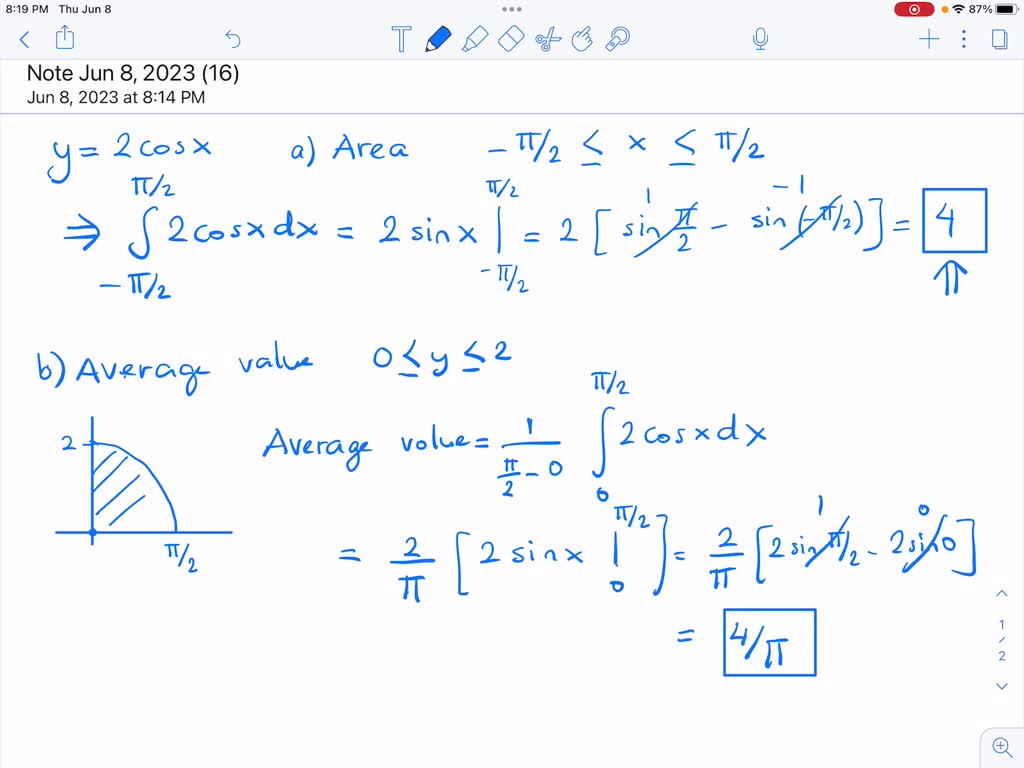 8:19 PM Thu Jun 8 87%
Note Jun 8, 2023 (16)
Jun 8, 2023 at 8:14 PM
y = 2 cos x a) Area -π/2 ≤ x ≤ π/2
⇒ ∫_{-π/2}^{π/2} 2 cos x dx = 2 sin x |_{-π/2}^{π/2} = 2 [ sin π/2 1 - sin (-π/2) -1 ] = 4
⇑
b) Average value 0 ≤ y ≤ 2
2
π/2
Average value = 1/(π/2 - 0) ∫_0^{π/2} 2 cos x dx
= 2/π [ 2 sin x |_0^{π/2} ] = 2/π [ 2 sin π/2 1 - 2 sin 0 0 ]
= 4/π
1
/
2